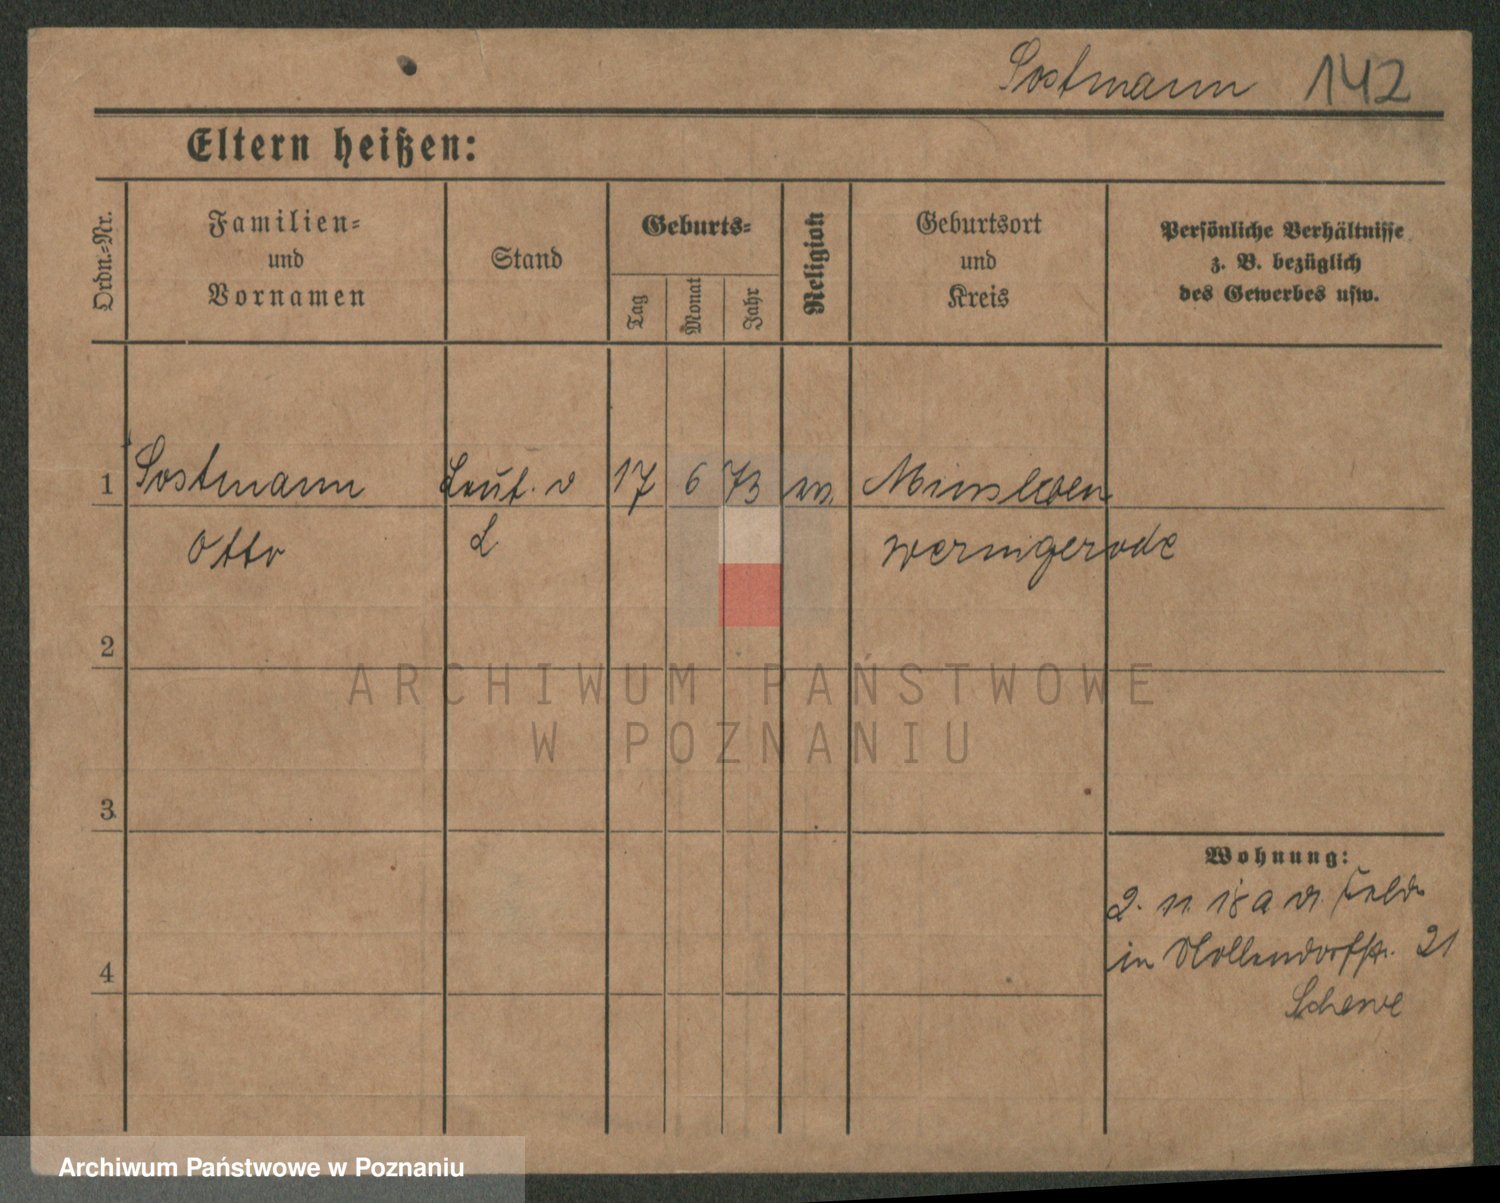 Sostmann 142
Eltern heißen:
Ordn.-Nr.
Familien-
und
Vornamen
Stand
Geburts-
Tag
Monat
Jahr
Religion
Geburtsort
und
Kreis
Persönliche Verhältnisse
z. B. bezüglich
des Gewerbes usw.
1 Sostmann Leut. d 17 6 73 ev. Minsleben
Otto L Wernigerode
2
3
4
Wohnung:
2. 11. 18 a d. Felde
in Nollendorfstr. 21
Schewe
ARCHIWUM PAŃSTWOWE
W POZNANIU
Archiwum Państwowe w Poznaniu